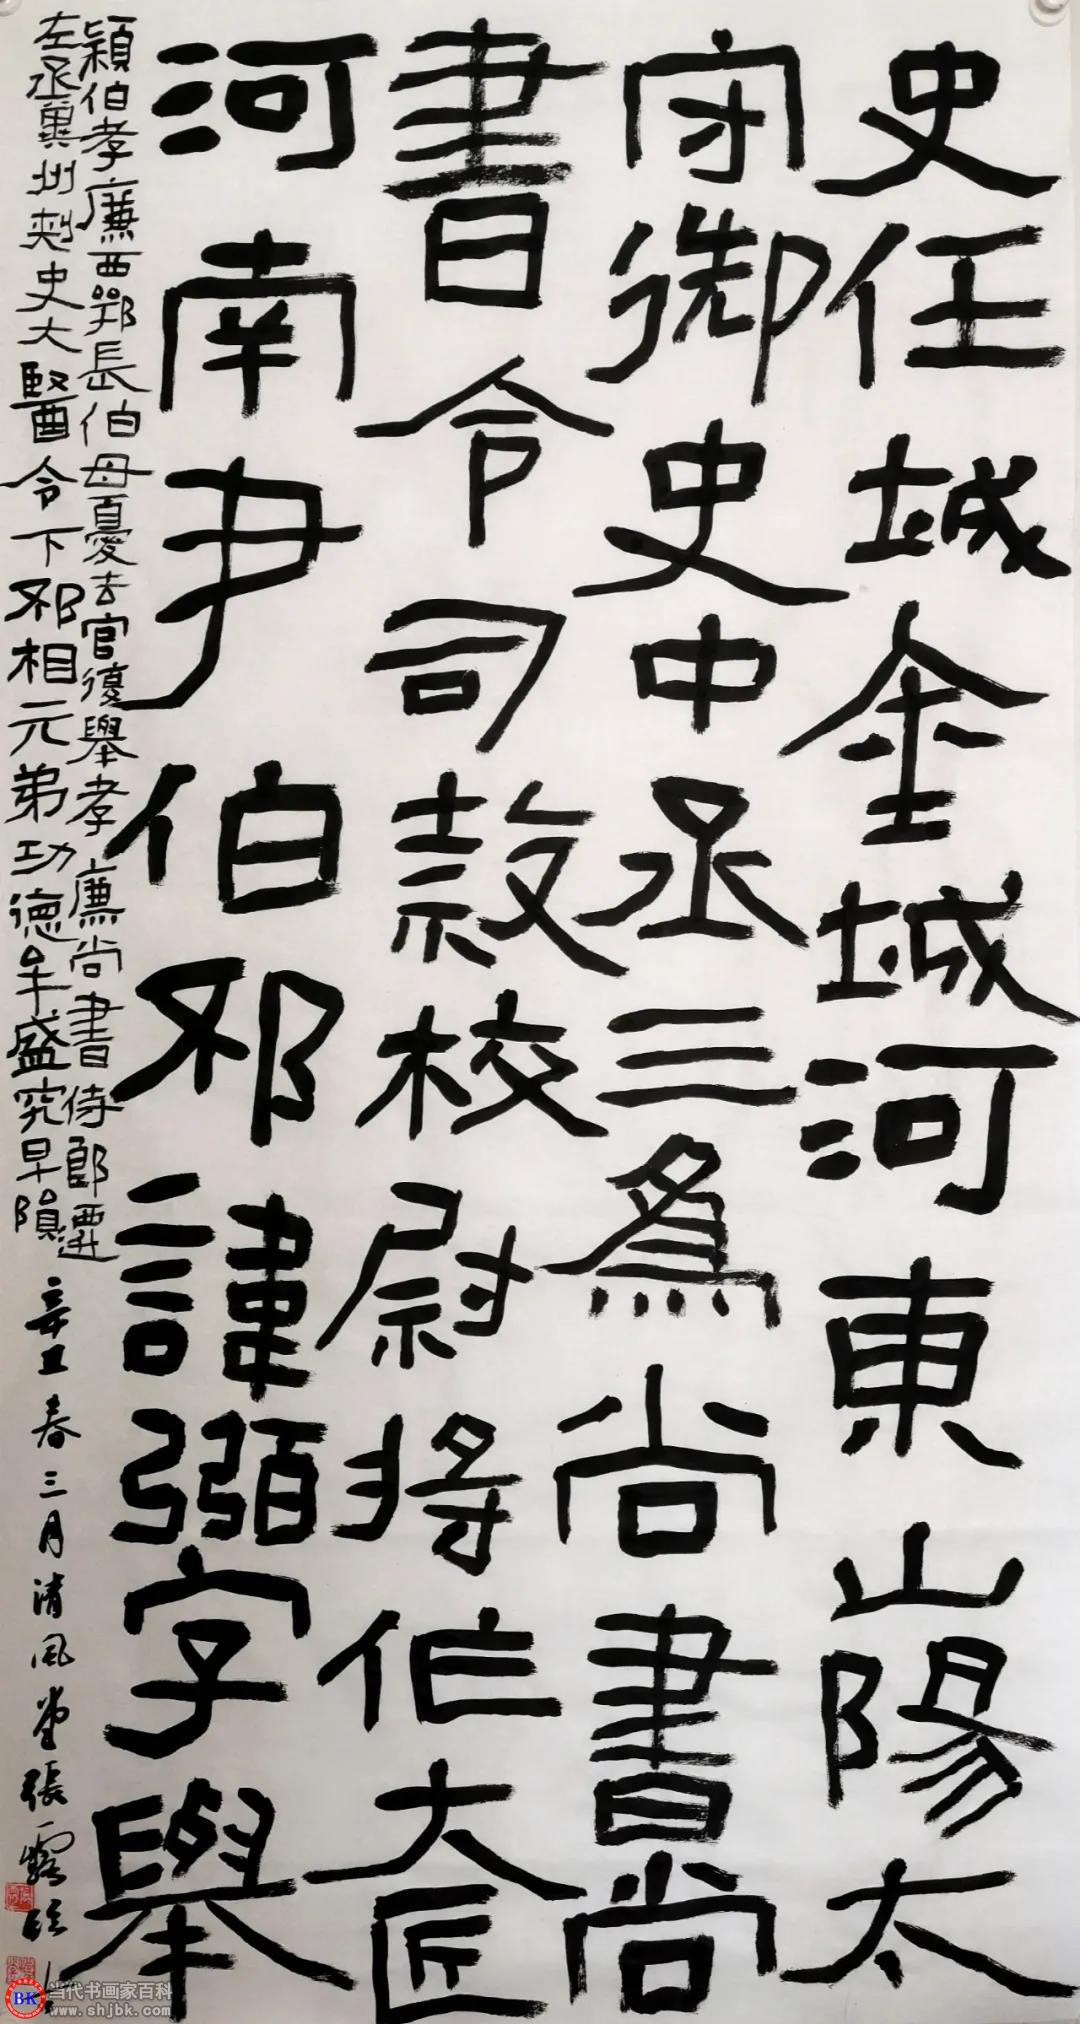 史任城金城河東山陽太
守御史中丞三為尚書尚
書令司𥡴校尉将作大匠
河南尹伯邳諱弼字舉
穎伯孝廉西鄂長伯母憂去官復舉孝廉尚書侍郎遷
左丞冀州刺史大醫令下邳相元弟功德牟盛究早隕
辛丑春三月清風堂張露臨
当代书画家百科
www.shjbk.com
BK